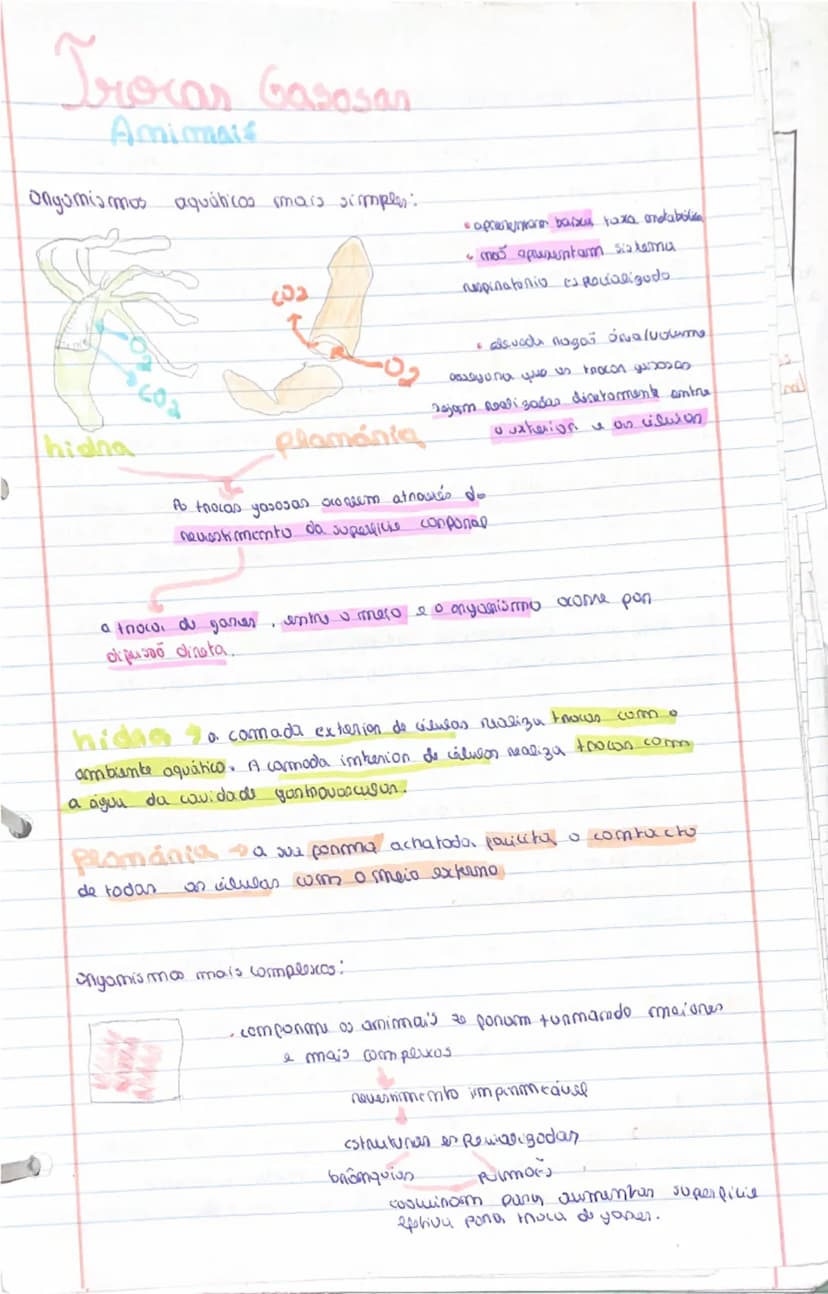 Trocas Gasosas
Animais
organismos aquáticos mais simples:
• apresentam baixa taxa metabólica
• não apresentam sistema
respiratório especializado
• elevada razão área/volume
assegura que as trocas gasosas
sejam realizadas diretamente entre
o exterior e as células
CO2
O2
O2
CO2
hidra
planária
As trocas gasosas ocorrem através do
revestimento da superfície corporal
a troca de gases, entre o meio e o organismo ocorre por
difusão direta.
hidra → a camada exterior de células realiza trocas com o
ambiente aquático. A camada interior de células realiza trocas com
a água da cavidade gastrovascular.
planária → a sua forma achatada facilita o contacto
de todas as células com o meio externo
organismos mais complexos:
• conforme os animais se foram tornando maiores
e mais complexos
revestimento impermeável
estruturas especializadas
brânquias pulmões
para aumentar superfície
efetiva para troca de gases.